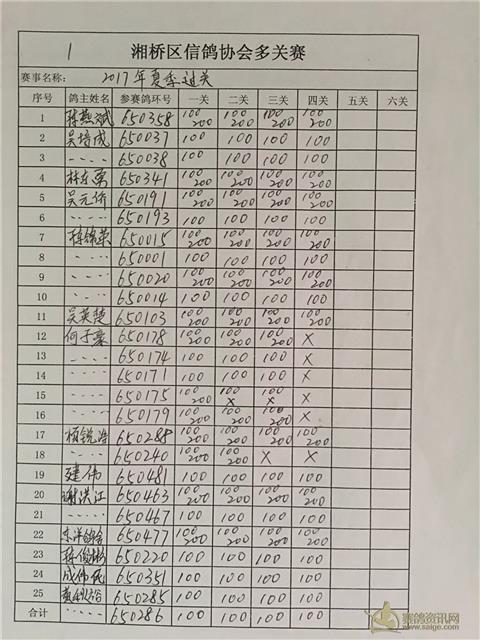 1 湘桥区信鸽协会多关赛
赛事名称: 2017年夏季过关
序号 鸽主姓名 参赛鸽环号 一关 二关 三关 四关 五关 六关
1 650358 100 200 100 200 100 200 100 200
2 吴培成 650037 100 100 100 100
3 ---- 650038 100 100 100 100
4 林东荣 650341 100 200 100 200 100 200 100 200
5 吴元侨 650191 100 200 100 200 100 200 100 200
6 ---- 650193 100 100 100 100
7 650015 100 200 100 200 100 200 100 200
8 ---- 650001 100 100 100 100
9 ---- 650020 100 200 100 200 100 200 100 200
10 ---- 650014 100 100 100 100
11 吴英楚 650103 100 200 100 200 100 200 100 200
12 何子豪 650178 100 200 100 200 100 200 ×
13 ---- 650174 100 100 100 ×
14 ---- 650171 100 100 100 ×
15 ---- 650175 100 200 100 × 100 × ×
16 ---- 650179 100 200 100 200 100 200 ×
17 650288 100 200 100 200 100 200 100 200
18 ---- 650240 100 200 100 200 × ×
19 建伟 650481 100 100 100 100
20 谢洪江 650463 100 200 100 200 100 200 100 200
21 ---- 650467 100 100 100 100
22 650477 100 200 100 200 100 200 100 200
23 650220 100 100 100 100
24 650351 100 100 100 100
25 650285 100 100 100 100
合计 ---- 650286 100 100 100 100
赛鸽资讯网
www.saige.com